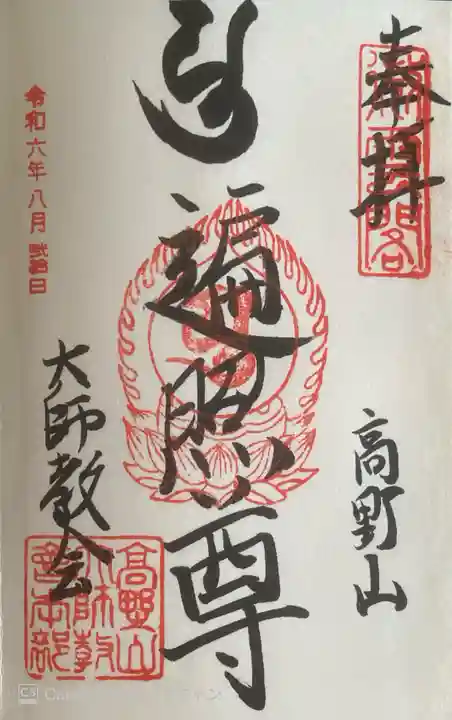 奉拝
高野山
遍照尊
大師教会
令和六年八月弐拾日
高野山
大師教
會本部
CS